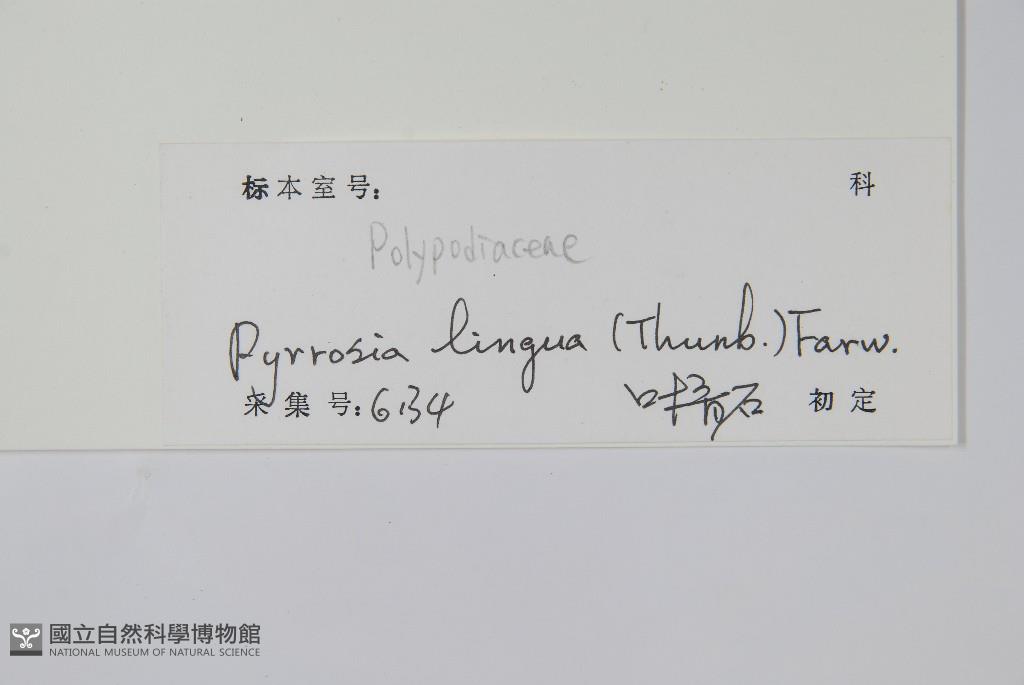 标本室号: 科
Polypodiaceae
Pyrrosia lingua (Thunb.) Farw.
采集号: 6134 叶育石 初定
國立自然科學博物館
NATIONAL MUSEUM OF NATURAL SCIENCE